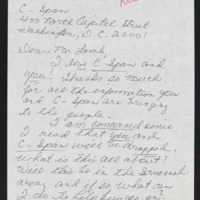 C-Span
400 North Capitol Street
Washington, D.C. 20001
Dear Mr. Lamb,
I love C-Span and
you! Thanks so much
for all the information you
and C-Span are bringing
to the people.
I am concerned since
I read that you and
C-Span will be dropped.
What is this all about?
Will this be in the Savannah
area, and if so, what can
I do to help